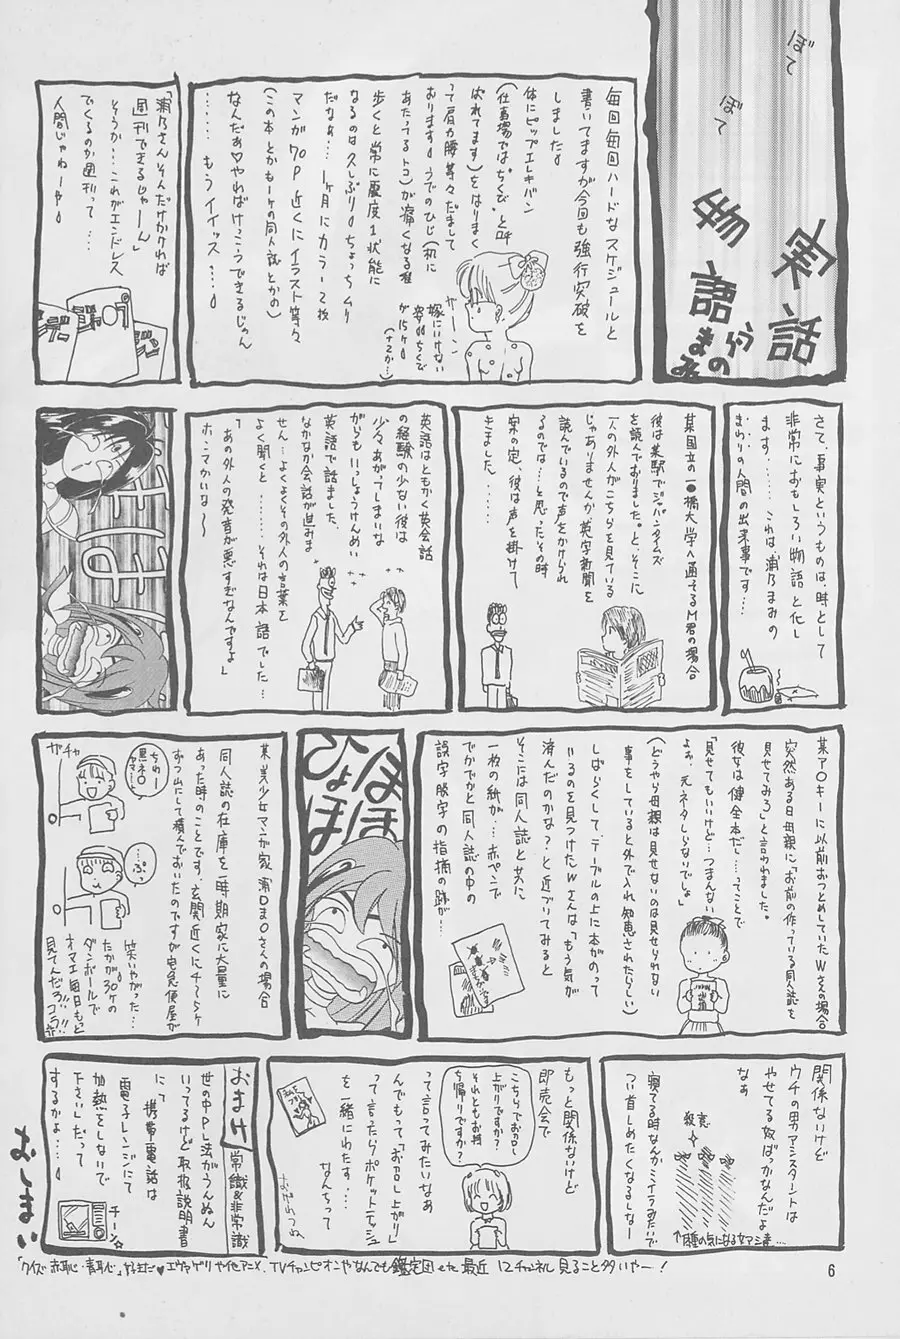 ぼて
ぼて
実話
物語
うらの
まみ
毎回毎回ハードなスケジュールと
書いてますが今回も強行突破を
しました。
体にピップエレキバン
(仕事場では"ちくび"と呼
ばれてます)をはりまく
って肩カ腰等々だまして
おります。うでのひじ(机に
あたってるトコ)が痛くなる程
歩くと常に震度1状態に
なるのは久しぶり。ちょっちムリ
だなぁ…1ヶ月にカラー2枚
マンガ70P近くにイラスト等々
(この本とかもー1ケの同人誌とかの)
なんだぁ♡やればけっこうできるじゃん
……もうイイッス…。
ザーーン
嫁にいけない
姿。ちくび
が15ヶ。
(+2か…)
「浦乃さんそんだけかければ
週刊できるじゃーん」
そうか…これがエンドレス
でくるのか週刊って…
人間じゃねーや。
さて事実というものは、時として
非常におもしろい物語と化し
ます……これは浦乃まみの
まわりの人間の出来事です…
某国立の一●橋大学へ通ってるM君の場合
彼は某駅でジャパンタイムズ
を読んでおりました。と、そこに
一人の外人がこちらを見ている
じゃありませんか英字新聞を
読んでいるので声をかけられ
るのでは…と思ったその時
案の定、彼は声を掛けて
きました……
英語はともかく英会話
の経験の少ない彼は
少々あがってしまいな
がらもいっしょうけんめい
英語で話ました。
なかなか会話が進みま
せん…よくよくその外人の言葉を
よく聞くと……それは日本語でした…
「あの外人の発音が悪すぎなんですよ」
ホンマかいな〜
某ア〇キーに以前おつとめしていたWさんの場合
突然ある日母親に「お前の作っている同人誌を
見せてみろ」と言われました。
彼女は健全本だし…ってことで
「見せてもいいけど…つまんない
よぉ、元ネタしらないでしょ」
(どうやら母親は見せないのは見せられない
事をしていると外で入れ知恵されたらしい)
しばらくして、テーブルの上に本がのって
いるのを見つけたWさんは「もう気が
済んだのかな?」と近づいてみると
そこには同人誌と共に
一枚の紙が…赤ペンで
でかでかと同人誌の中の
誤字脱字の指摘の跡が…
ほほ
ひょほ
某・美少女マンガ家 浦〇ま〇さんの場合
同人誌の在庫を一時期家に大量に
あった時のことです。玄関近くにチ〜らケ
ずつ山にして積んでおいたのですが宅急便屋が
ガチャ
ちわー
黒ネ〇
ヤマ〜ト
…ぷ
笑いやがった…
たかが30ヶの
ダンボールで
オマエ毎日もっと
見てんだろ!!コラ!!
関係ないけど
ウチの男アシスタントは
やせてる奴ばっかなんだよ
なぁ
寝てる時なんかミイラみたいで
つい首しめたくなるしなー
殺意
↑(種の気になる女アシ達…
もっと関係ないけど
即売会で
こちらでお召し
上がりですか?
それともお持
ち帰りですか?
って言ってみたいなぁ
んでもって「お召し上がり」
って言たらポケットティッシュ
を一緒にわたす…
なんちって
おまけ 常識&非常識
世の中PL法がうんぬん
いってるけど取扱説明書
に 携帯電話は
電子レンジにて
加熱をしないで
下さいしだって
するかよ…。
チーン☆
おしまい
「クイズ赤恥・青恥」♥エヴァゲリや他アニメ、TVチャンピオンやなんでも鑑定団etc最近12チャンネル見ること多いやー!
6